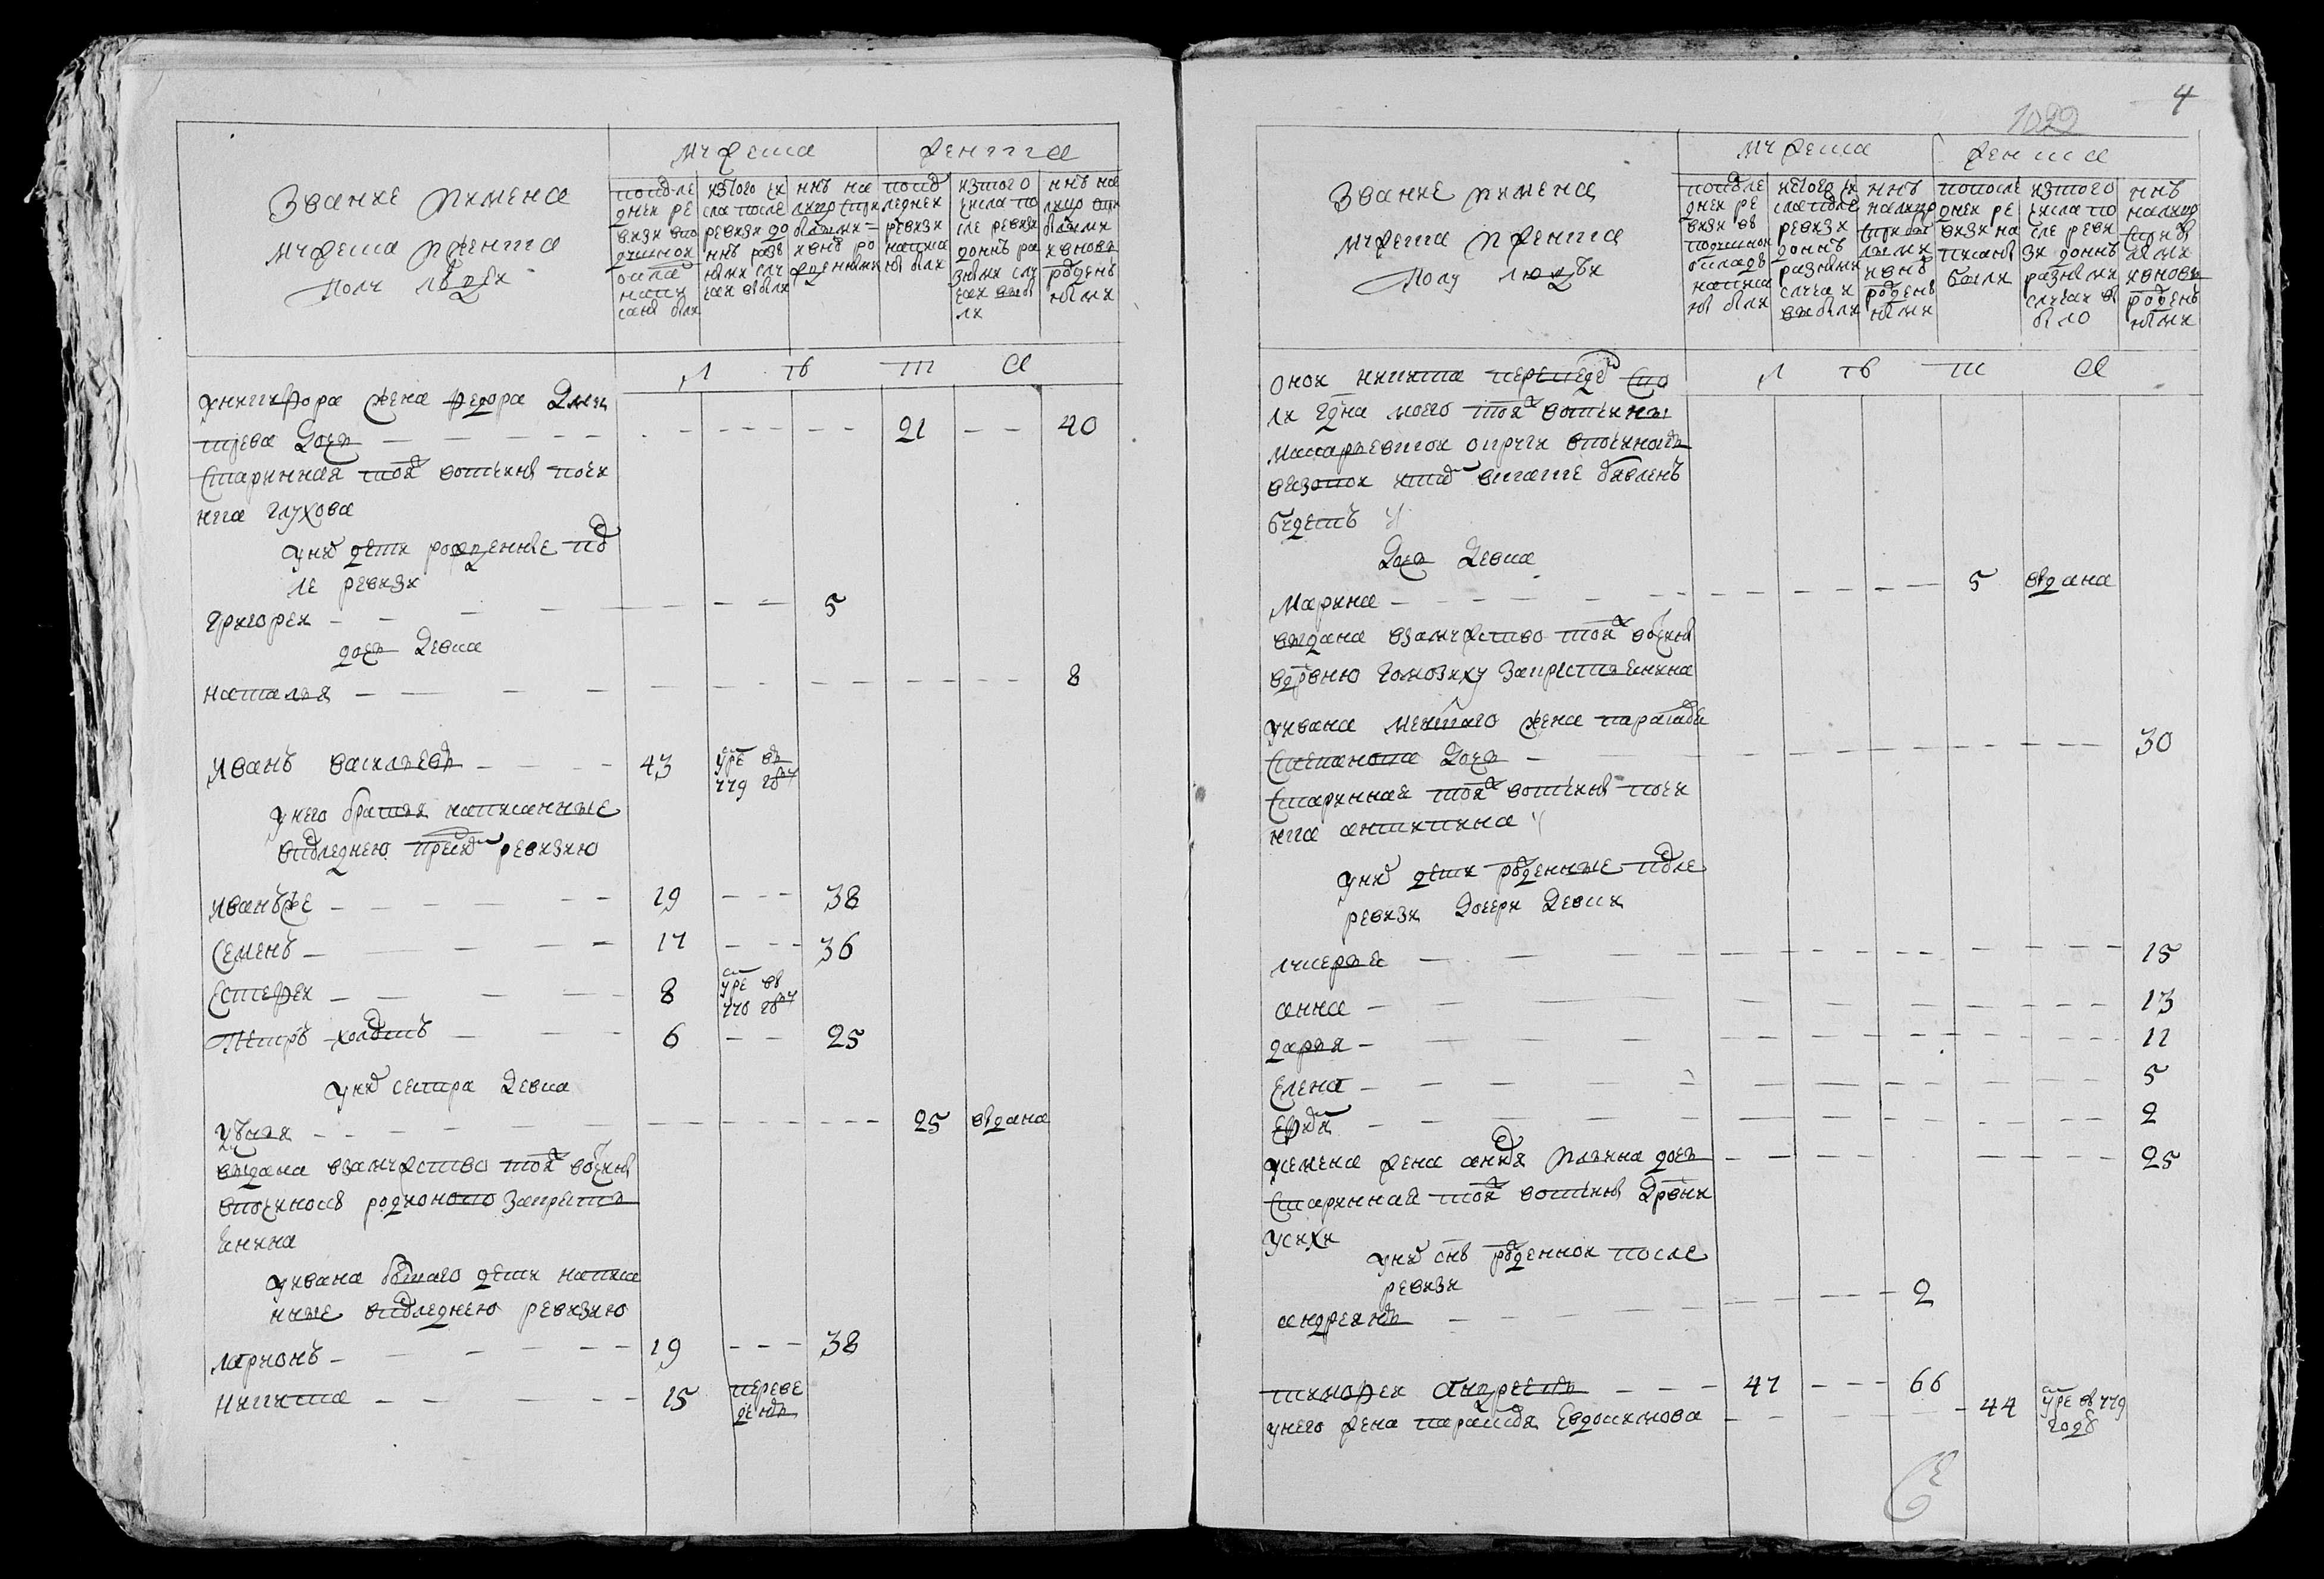 Звание имена
мужеска и женска
полу людей
мужеска
женска
по последней ревизии в подушной оклад написаны были
из того числа после ревизии до ныне разными случаи выбыли
ныне на лицо с прибылыми и вновь рожденными
по последней ревизии написаны были
из того числа после ревизии до ныне разными случаи выбыли
ныне на лицо с прибылыми и вновь рожденными
л е т а
У никифора жена федора Дмен
тьева Дочь 21 40
Старинная тоя вотчины почи
нка глухова
У них дети рожденные пос
ле ревизии
Григореи 5
дочь Девка
наталья 8
Иванъ васильевъ 43 умре въ 779 году
У него братья написанные
в последнею пред сим ревизию
Иванъ же 19 38
Семенъ 17 36
Естефеи 8 умре въ 770 году
Петръ холостъ 6 25
У них сестра Девка
25 выдана
выдана в замужство тоя вотчины
в починокъ родионово за крестья
нина
У ивана большаго дети написа
нные в последнею ревизию
ларионъ 19 38
никита 15 переведенъ
4
1022
Звание имена
мужеска и женска
полу людей
мужеска
женска
по последней ревизии в подушной оклад написаны были
из того числа после ревизии до ныне разными случаи выбыли
ныне на лицо с прибылыми и вновь рожденными
по последней ревизии написаны были
из того числа после ревизии до ныне разными случаи выбыло
ныне на лицо с прибылыми и вновь рожденными
л е т а
Оной никита переведен с во
ли Гдна моего тоя вотчины
макарьевской округи в починокъ
вязовой и тамо в сказке объявленъ
будетъ
Дочь Девка
Марина 5 выдана
выдана в замужство тоя вотчины
в дрвню Гомозиху за крестьянина
У ивана меншаго жена парасковья
Степанова Дочь 30
Старинная тоя вотчины почи
нка антипина
У них дети рожденные после
ревизи Дочери Девки
лукерья 15
анна 13
дарья 11
Елена 5
2
У семена жена ильина дочь 25
Старинная тоя вотчины Дрвни
усихи
У них снъ рожденной после
ревизи
андреянъ 2
тимофеи Андреевъ 47 66
У него жена парасковья Евдокимова 44 умре въ 779 году